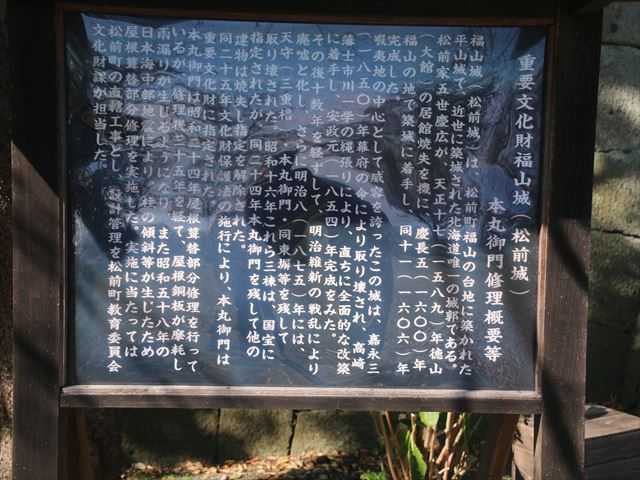 重要文化財福山城（松前城）
本丸御門修理概要等
福山城（松前城）は、松前町福山の台地に築かれた
平山城で、近世に築城された北海道唯一の城郭である。
松前家五世慶広が、天正十七（一五八九）年徳山
（大館）の居館焼失を機に、慶長五（一六〇〇）年
福山の地で築城に着手し、同十一（一六〇六）年
完成した。
蝦夷地の中心として威容を誇ったこの城は、嘉永三
（一八五〇）年幕府の命により取り壊され、高崎
藩士市川一学の縄張りにより、直ちに全面的な改築
に着手し、安政元（一八五四）年完成をみた。
その後十数年を経ずして、明治維新の戦乱により
廃墟と化し、さらに明治八（一八七五）年には、
天守（三重櫓）・本丸御門・同東塀等を残して
取り壊された。昭和十六年これら三棟は、国宝に
指定されたが、同二十四年本丸御門を残して他の
建物は焼失し指定を解除された。
同二十五年文化財保護法の施行により、本丸御門は
重要文化財に指定された。
本丸御門は昭和三十四年屋根葺替部分修理を行って
いるが、修理後二十五年を経て、屋根銅板が摩耗し
雨漏りが生じるようになり、また昭和五十八年の
日本海中部地震により、柱の傾斜等が生じたため
屋根葺替部分修理を実施した。実施に当たっては
松前町の直轄工事とし、設計管理を松前町教育委員会
文化財課が担当した。